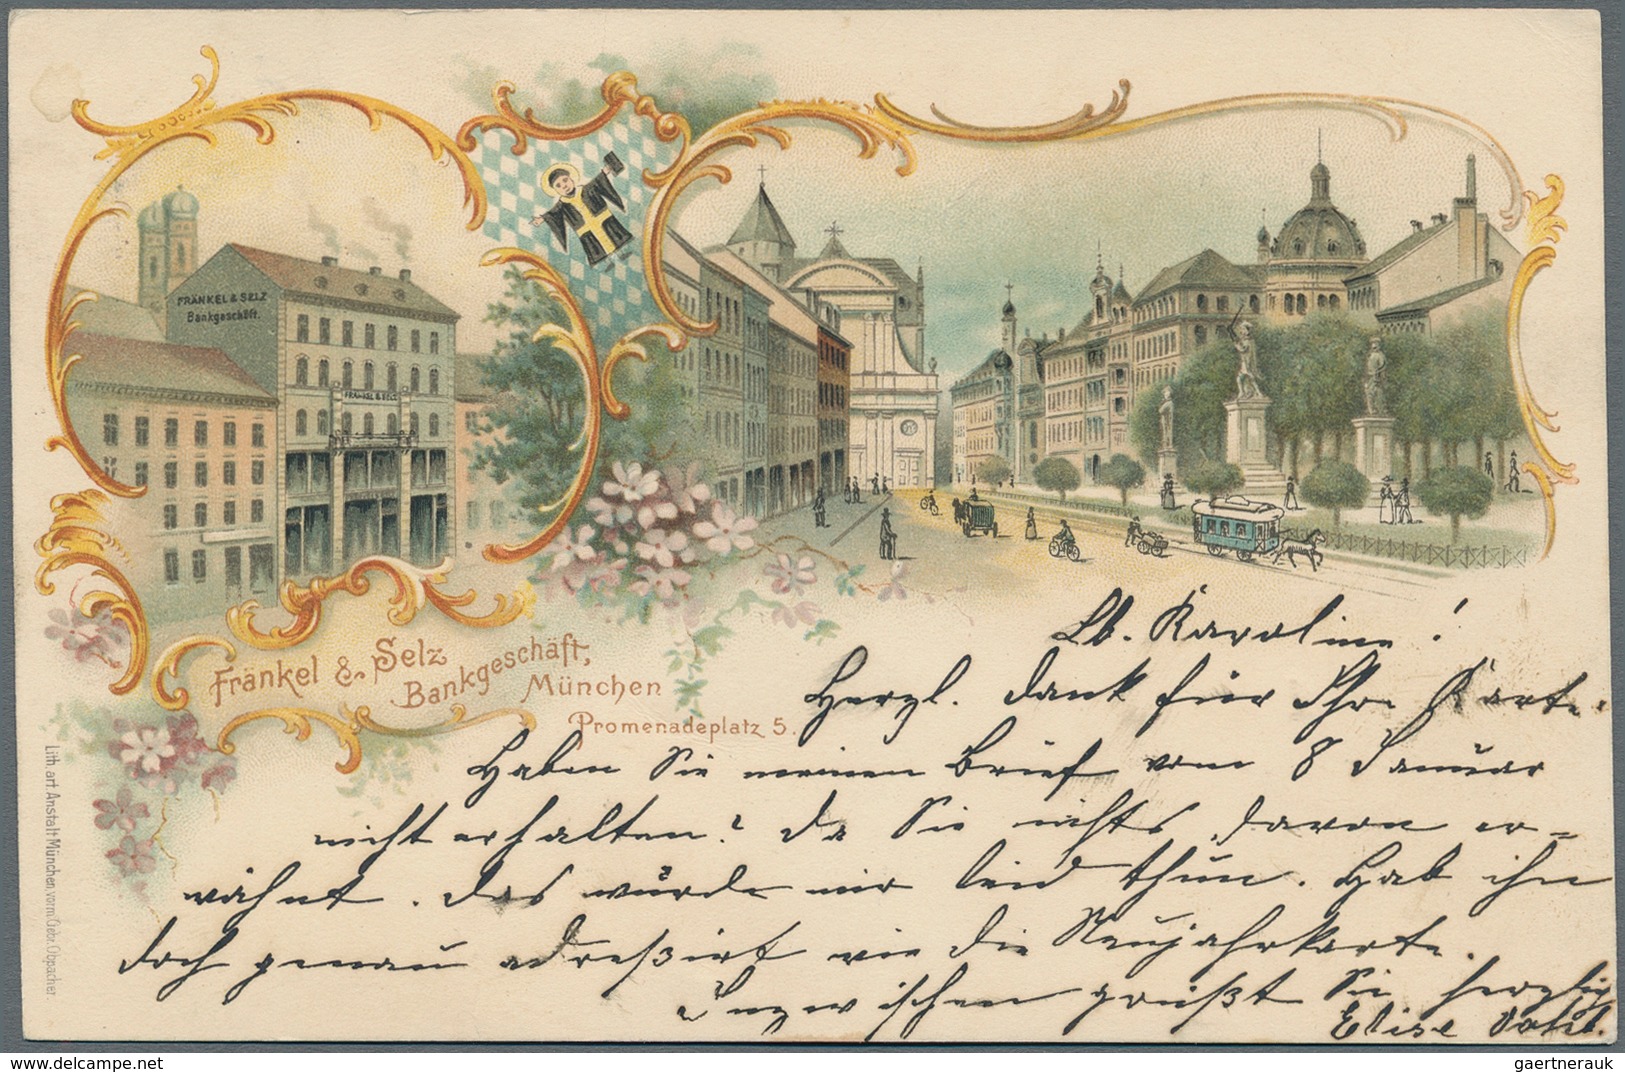 FRÄNKEL & SELZ
Bankgeschäft.
FRÄNKEL & SELZ
Fränkel & Selz
Bankgeschäft,
München
Promenadeplatz 5.
Lith. art. Anstalt München, vorm. Gebr. Obpacher
Lb. Karoline!
Herzl. Dank für Ihre Karte.
Haben Sie meinen Brief vom 8 Januar
nicht erhalten? Da Sie nichts davon er=
wähnt. Das würde mir leid thun. Hab ihn
doch genau adreßirt wie die Neujahrkarte.
Inzwischen grüßt Sie herzlig
Elise
delcampe.net
gaertnerauk